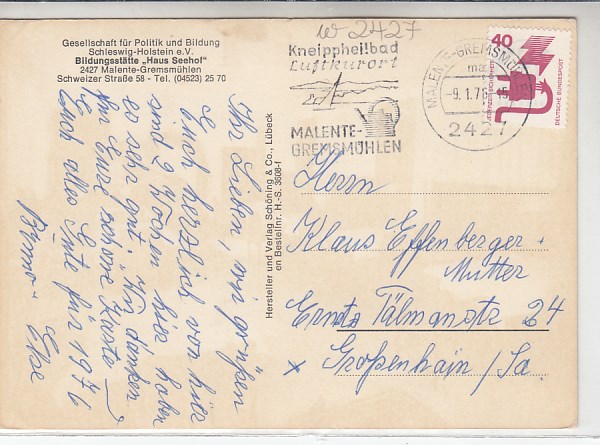 w 2427
Gesellschaft für Politik und Bildung
Schleswig-Holstein e.V.
Bildungsstätte „Haus Seehof"
2427 Malente-Gremsmühlen
Schweizer Straße 58 - Tel. (04523) 25 70
Kneippheilbad
Luftkurort
MALENTE-
GREMSMÜHLEN
MALENTE-GREMSMÜHLEN
- 9. 1. 76 - 15
2427
40
DEUTSCHE BUNDESPOST
Ihr Lieben, wir grüßen
Euch herzlich von hier
sind 2 Wochen hier haben
es sehr gut. Wir danken
für Eure schöne Karte
Euch alles Gute für 1976
Else
Hersteller und Verlag Schöning & Co., Lübeck
en Bestellnr. H.-S. 3608-f
Herrn
Klaus Effenberger +
Mutter
Ernst Tälmanstr 24
x Großenhain / Sa.